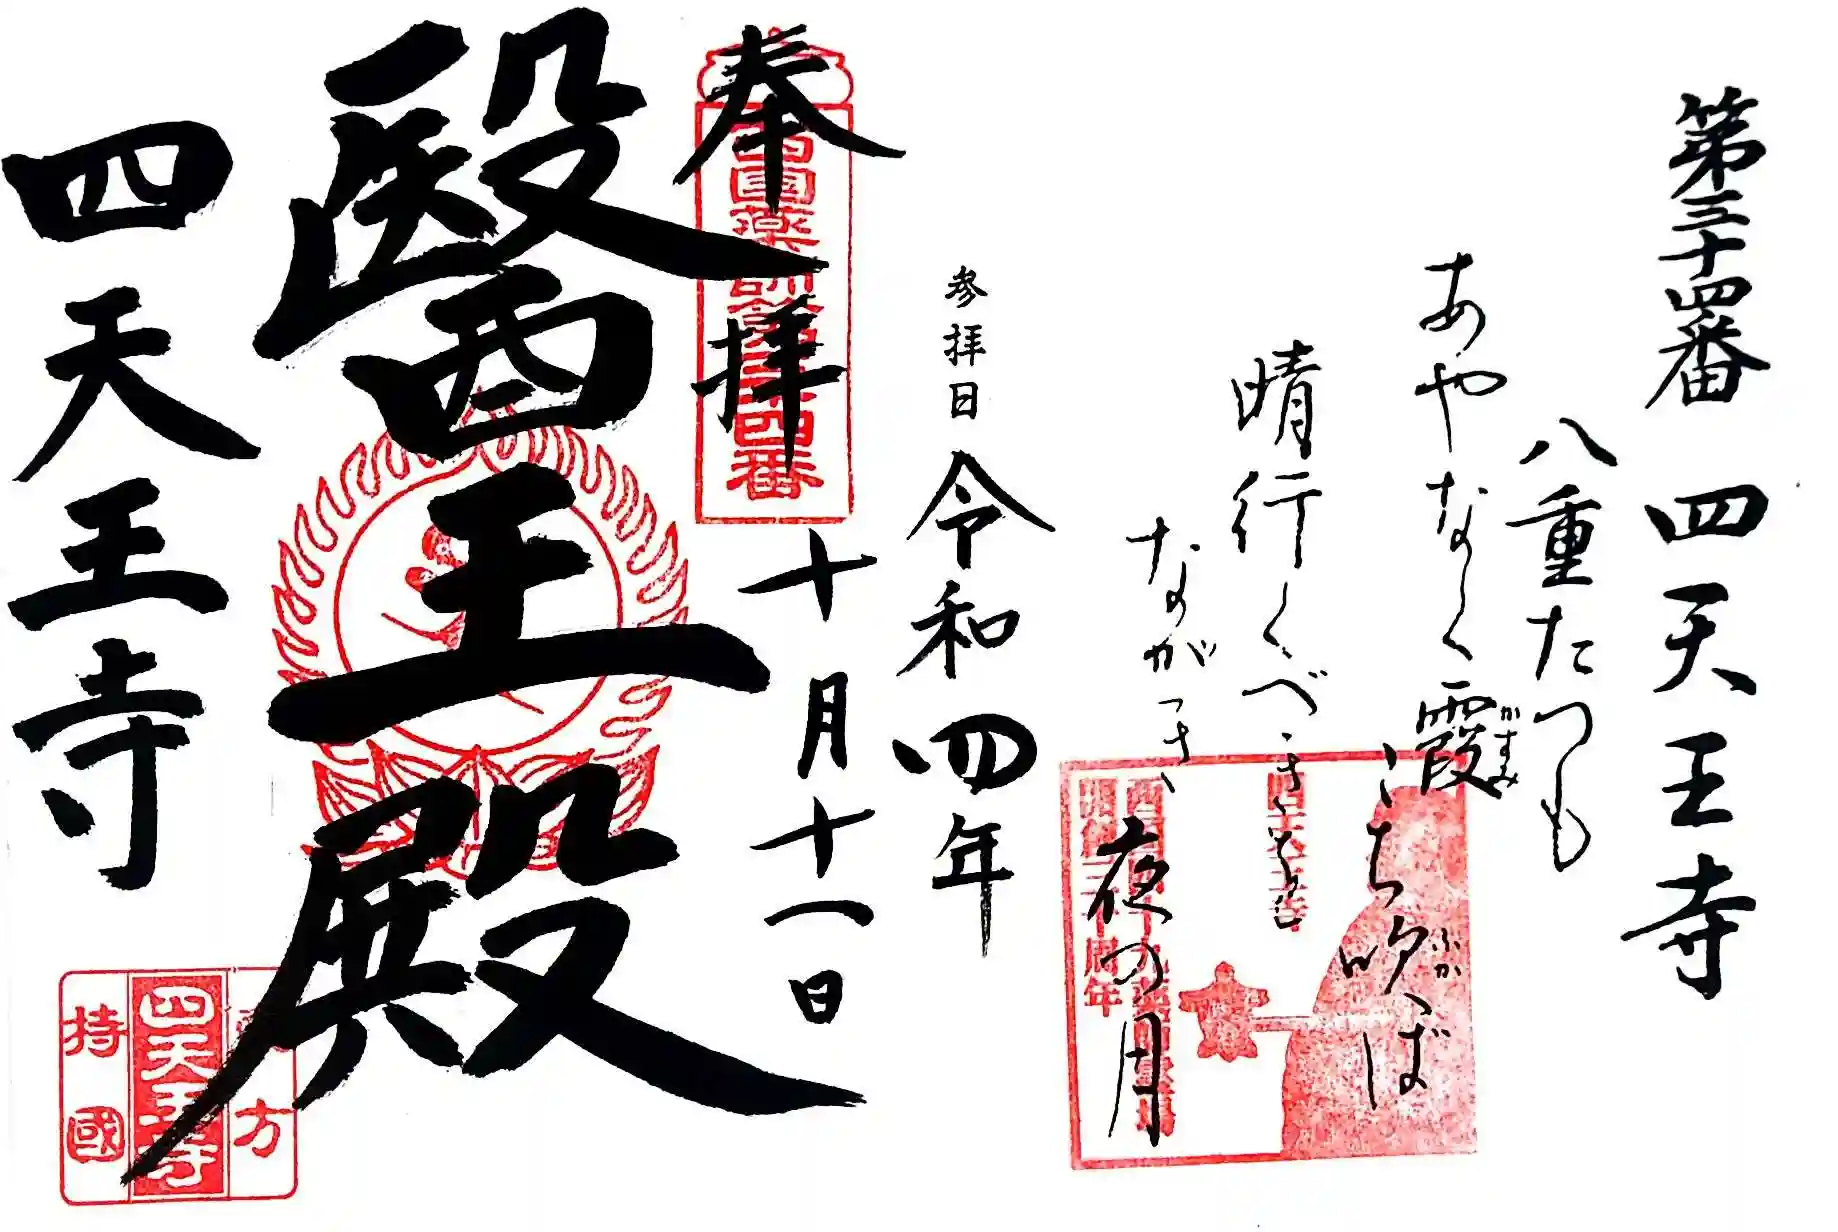 第三十四番 四天王寺
八重たつも
あやなく霞
かすみ
こち吹ば
ふか
晴行くべき
ながき
夜の月
参拝日 令和四年
十月十一日
奉拝
西国薬師第三十四番
醫王殿
四天王寺
方
四天王寺
持國